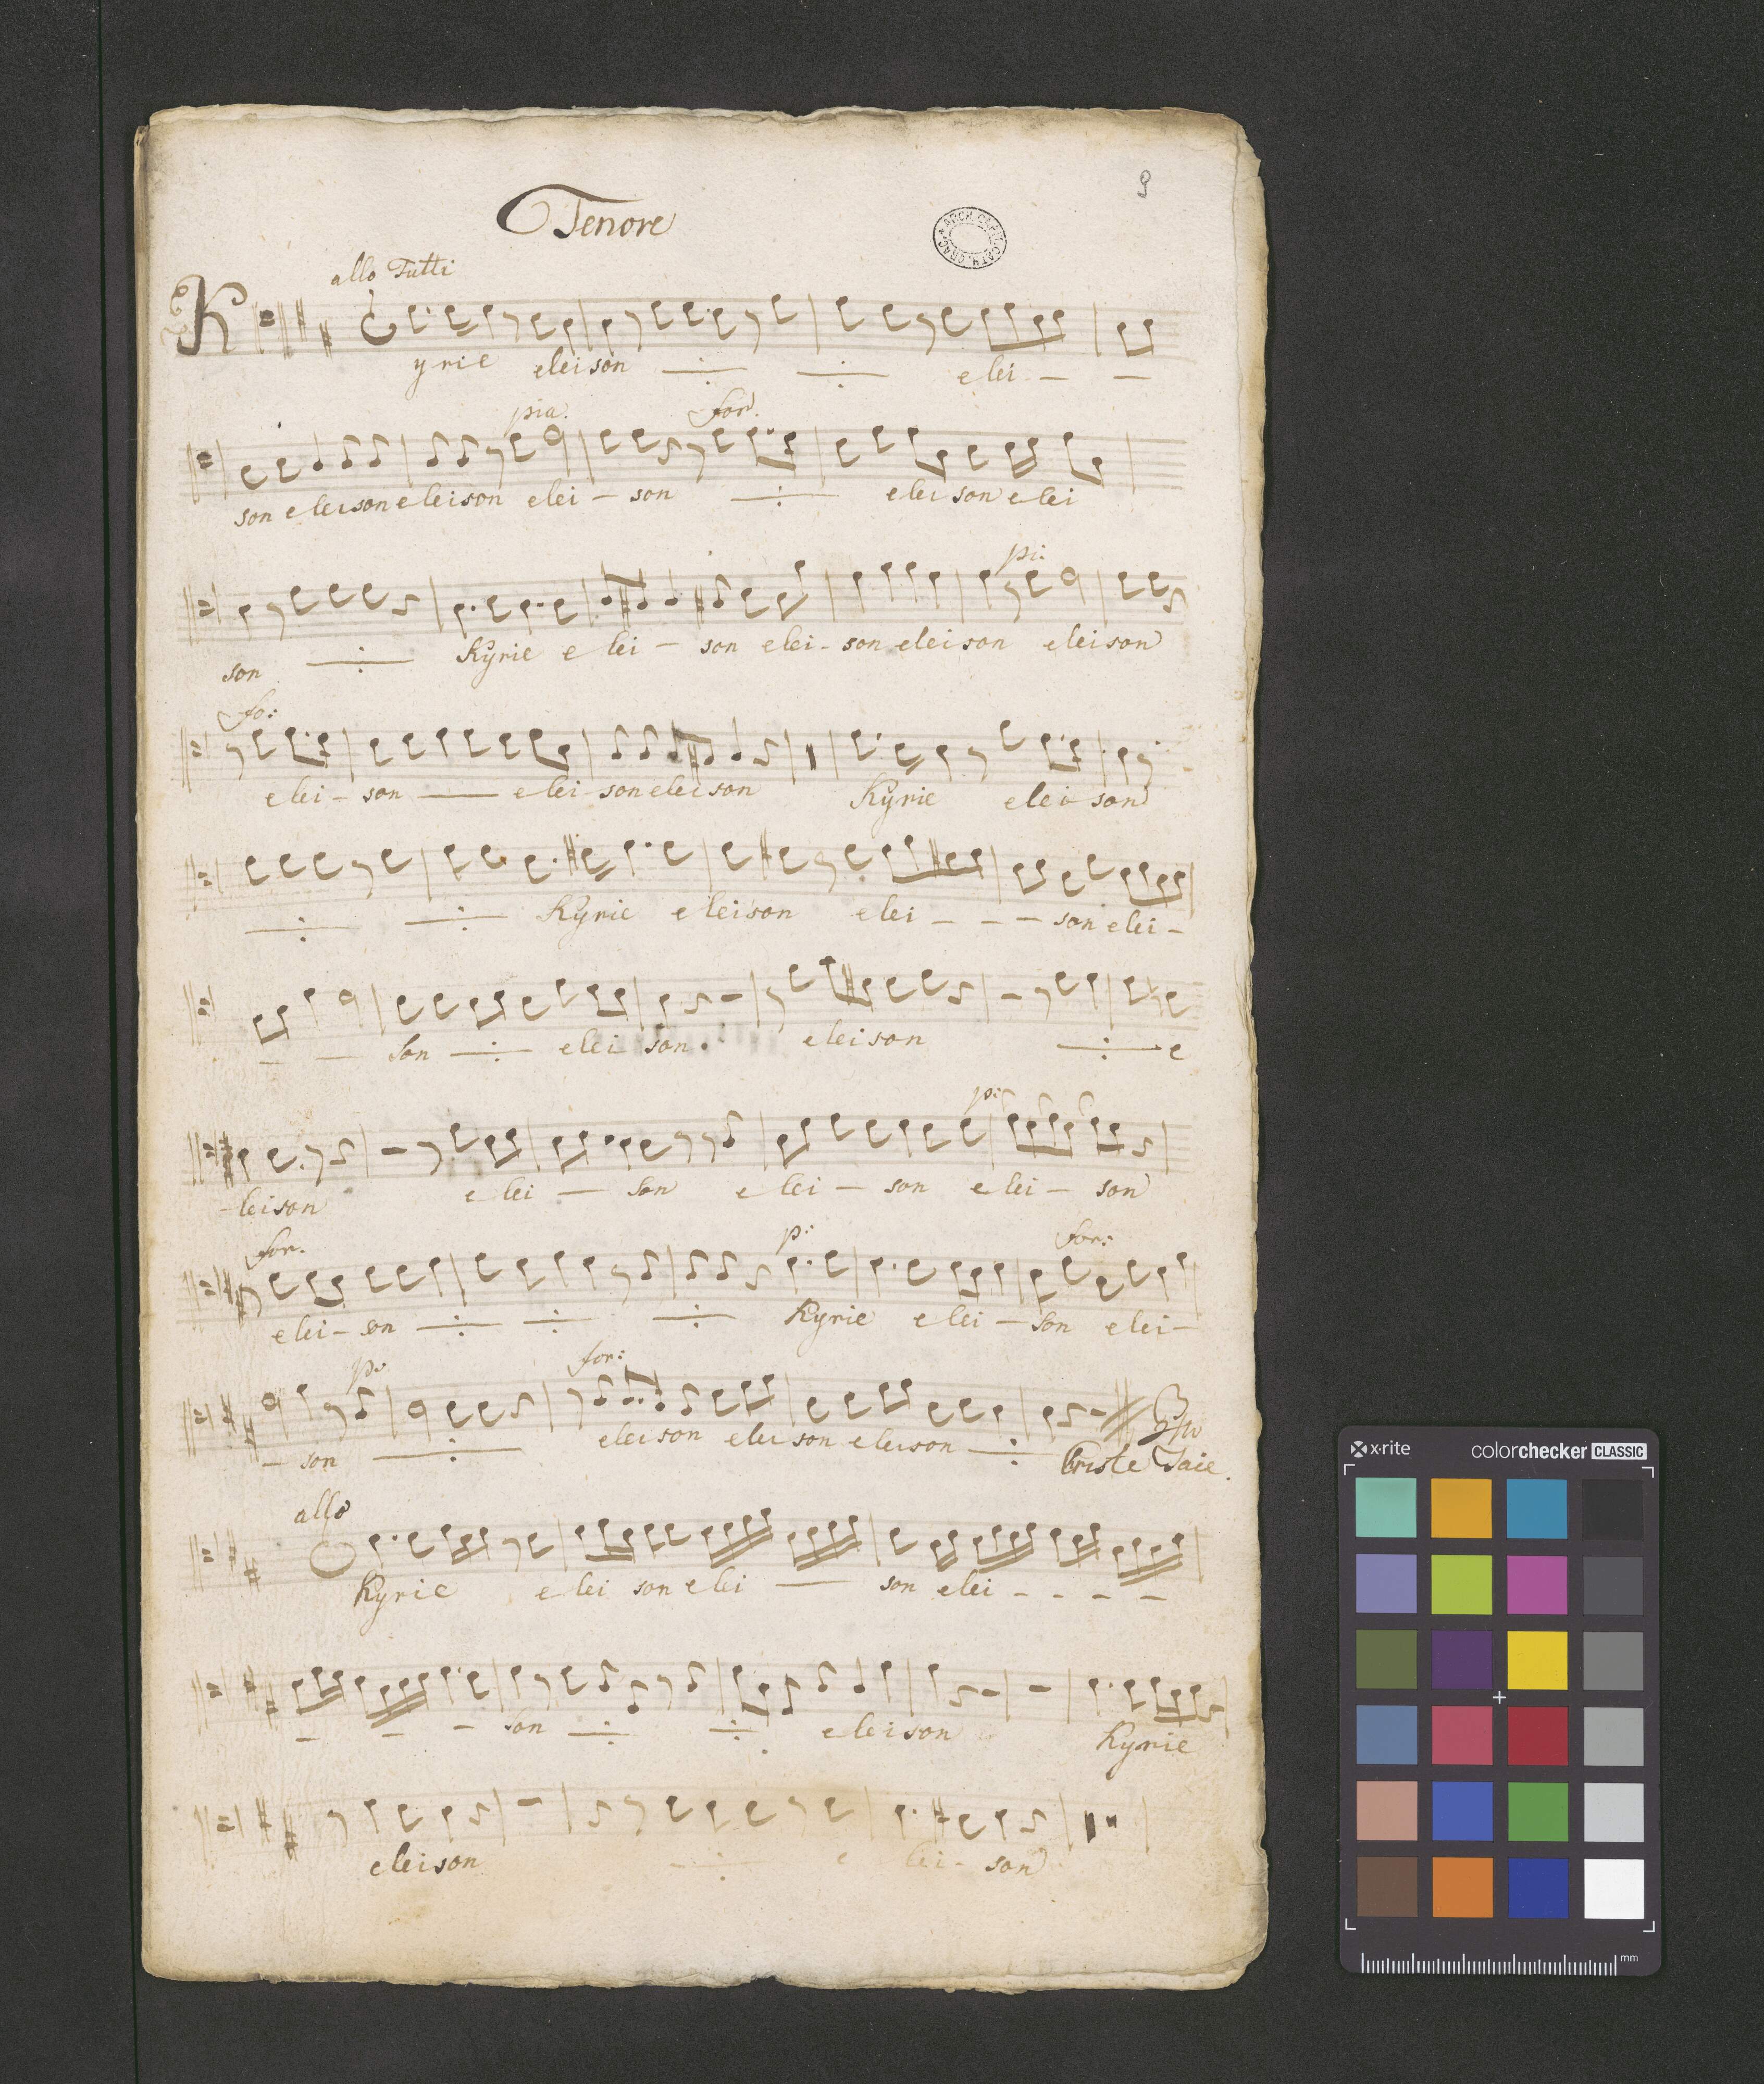 9
Tenore
ARCH. CAPIT. CATH. CRAC.
allo Tutti
Kyrie eleison elei - -
pia. for.
son eleison eleison elei - son elei son elei
pi:
son Kyrie e lei - son elei - son eleison eleison
fo:
elei - son elei - son eleison Kyrie elei son
Kyrie eleison elei - - - son elei -
- - son elei son. eleison e
pi:
- leison e lei - son e lei - son elei - son
for. p: for:
elei - son Kyrie e lei - son elei -
po for:
- son eleison elei son eleison
Criste Taie.
allo
Kyrie e lei son elei - son elei - - - -
- - - son eleison Kyrie
eleison e lei - son
x-rite colorchecker CLASSIC
mm